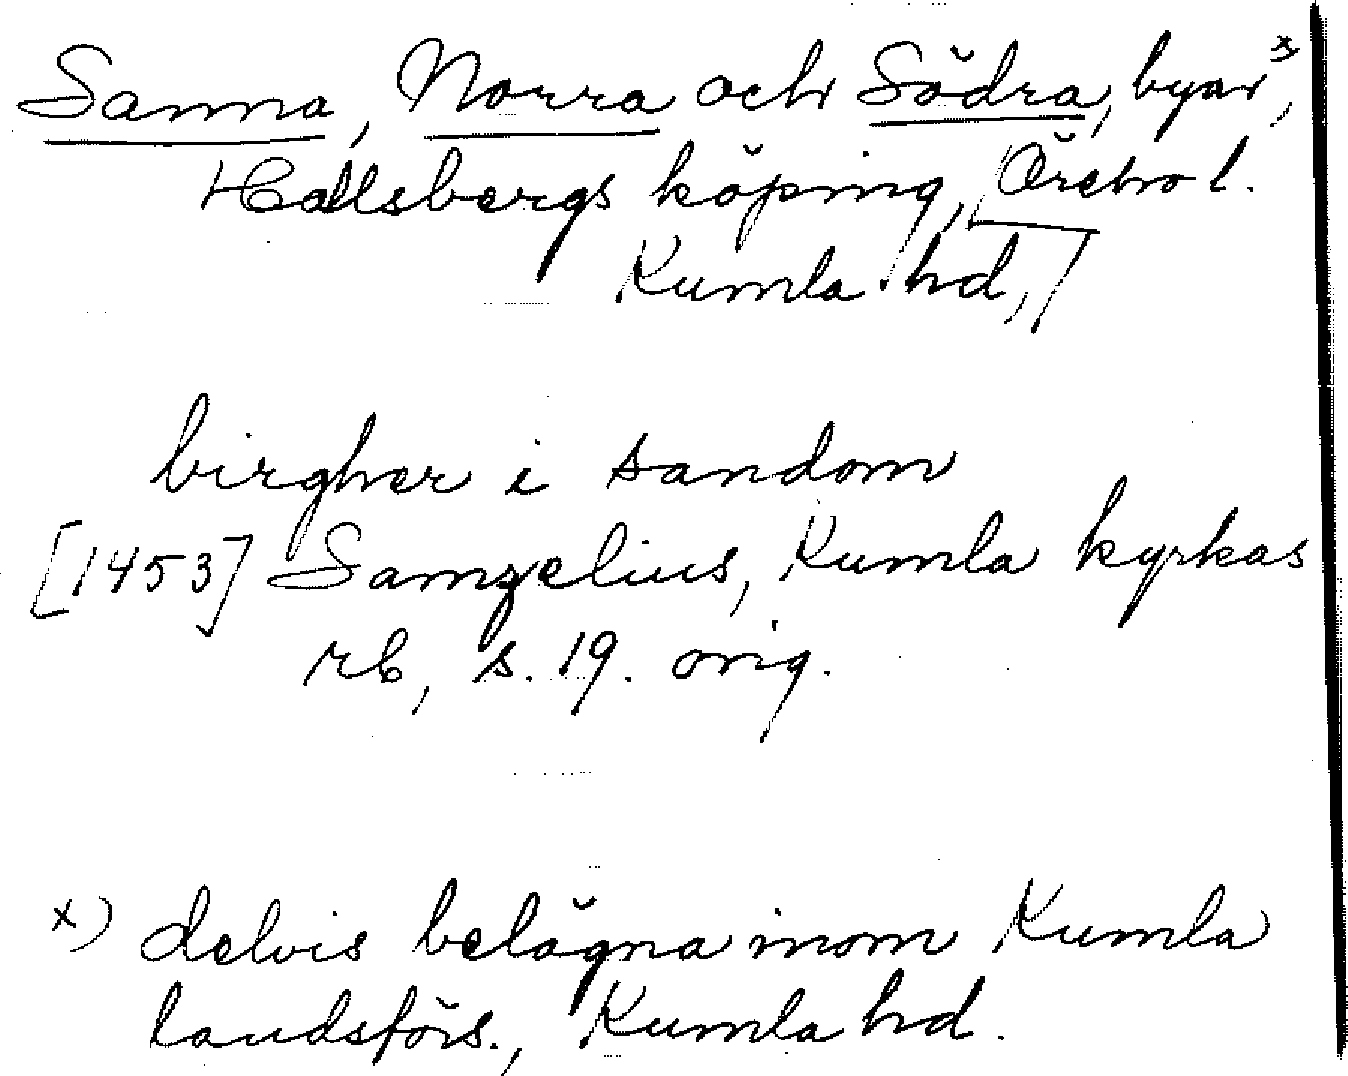 Sanna, Norra och Södra, byar x),
Hallsbergs köping, Örebro l.
Kumla hd,
birgher i sandom
[1453] Samzelius, Kumla kyrkas
rb, s. 19. orig.
x) delvis belägna inom Kumla
landsförs., Kumla hd.